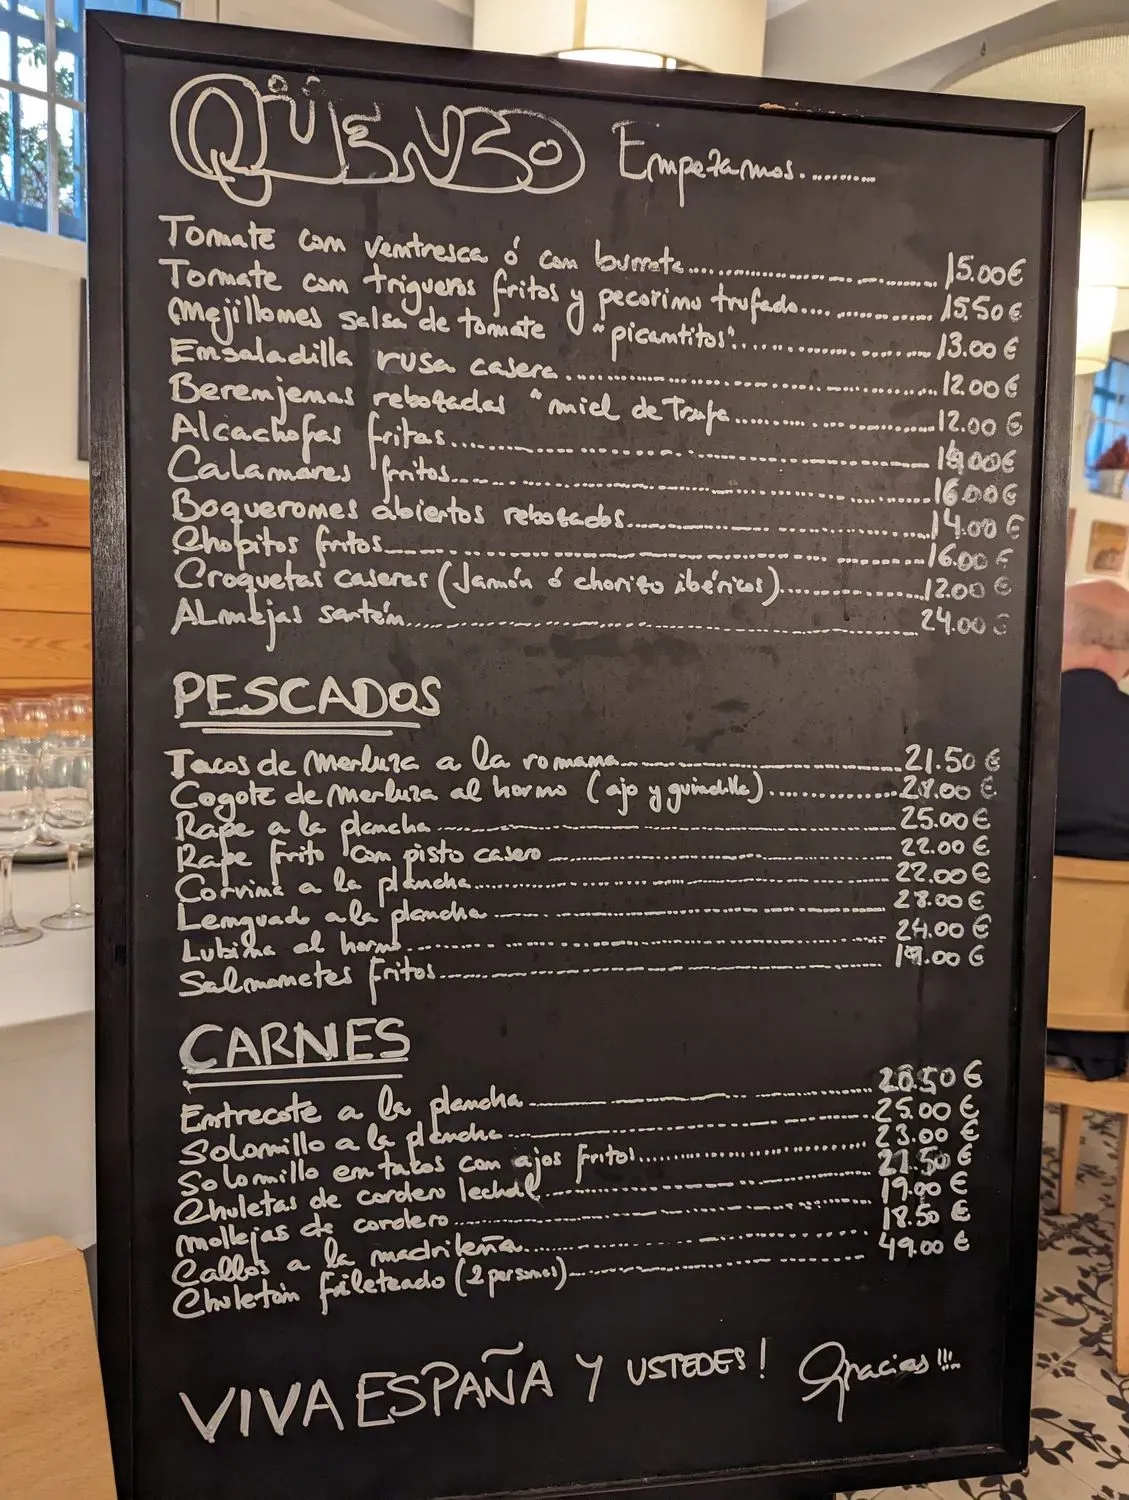 QÜENCO Empezamos..........
Tomate con ventresca ó con burrata.......... 15.00€
Tomate con trigueros fritos y pecorino trufado.......... 15.50€
Mejillones salsa de tomate "picantitos".......... 13.00€
Ensaladilla rusa casera.......... 12.00€
Berenjenas rebozadas "miel de Trufa.......... 12.00€
Alcachofas fritas.......... 00€
Calamares fritos.......... 16.00€
Boquerones abiertos rebozados.......... 14.00€
Chopitos fritos.......... 16.00€
Croquetas caseras (Jamón ó chorizo ibéricos).......... 12.00€
ALmejas sartén.......... 24.00€
PESCADOS
Tacos de Merluza a la romana.......... 21.50€
Cogote de Merluza al horno (ajo y guindilla)..........
Rape a la plancha.......... 25.00€
Rape frito con pisto casero.......... 22.00€
Corvina a la plancha.......... 22.00€
Lenguado a la plancha.......... 28.00€
Lubina al horno.......... 24.00€
Salmonetes fritos.......... 19.00€
CARNES
Entrecote a la plancha.......... 20.50€
Solomillo a la plancha.......... 25.00€
Solomillo en tacos con ajos fritos.......... 23.00€
Chuletas de cordero lechal.......... 21.50€
Mollejas de cordero.......... 19.00€
Callos a la madrileña.......... 18.50€
Chuletón fileteado (2 personas).......... 49.00€
VIVA ESPAÑA Y USTEDES! Gracias!!!